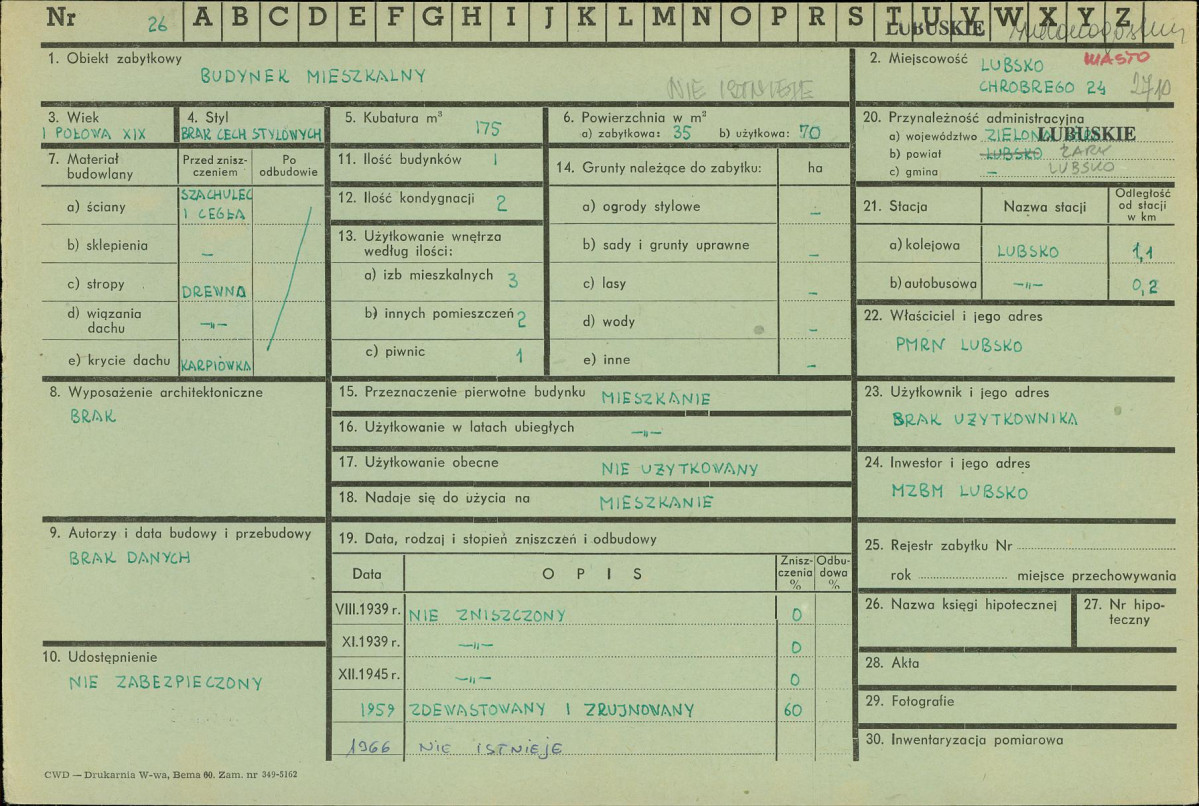 Nr 26 A B C D E F G H I J K L M N O P R S T U V W X Y Z
LUBUSKIE
1. Obiekt zabytkowy
BUDYNEK MIESZKALNY
NIE ISTNIEJE
2. Miejscowość LUBSKO MIASTO
CHROBREGO 24 2710
3. Wiek
I POŁOWA XIX
4. Styl
BRAK CECH STYLOWYCH
5. Kubatura m³ 175
6. Powierzchnia w m²
a) zabytkowa: 35 b) użytkowa: 70
20. Przynależność administracyjna
a) województwo ZIELONA LUBUSKIE
b) powiat LUBSKO ŻARY
c) gmina – LUBSKO
7. Materiał budowlany
Przed zniszczeniem
Po odbudowie
a) ściany SZACHULEC I CEGŁA
b) sklepienia –
c) stropy DREWNO
d) wiązania dachu –„–
e) krycie dachu KARPIÓWKA
11. Ilość budynków 1
12. Ilość kondygnacji 2
13. Użytkowanie wnętrza
według ilości:
a) izb mieszkalnych 3
b) innych pomieszczeń 2
c) piwnic 1
14. Grunty należące do zabytku: ha
a) ogrody stylowe –
b) sady i grunty uprawne –
c) lasy –
d) wody –
e) inne –
21. Stacja Nazwa stacji Odległość od stacji w km
a) kolejowa LUBSKO 1,1
b) autobusowa –„– 0,2
22. Właściciel i jego adres
PMRN LUBSKO
8. Wyposażenie architektoniczne
BRAK
15. Przeznaczenie pierwotne budynku MIESZKANIE
16. Użytkowanie w latach ubiegłych –„–
17. Użytkowanie obecne NIE UŻYTKOWANY
18. Nadaje się do użycia na MIESZKANIE
23. Użytkownik i jego adres
BRAK UŻYTKOWNIKA
24. Inwestor i jego adres
MZBM LUBSKO
9. Autorzy i data budowy i przebudowy
BRAK DANYCH
19. Data, rodzaj i stopień zniszczeń i odbudowy
Data OPIS Zniszczenia % Odbudowa %
VIII.1939 r. NIE ZNISZCZONY 0
XI.1939 r. –„– 0
XII.1945 r. –„– 0
1959 ZDEWASTOWANY I ZRUJNOWANY 60
1966 NIE ISTNIEJE
25. Rejestr zabytku Nr
rok miejsce przechowywania
26. Nazwa księgi hipotecznej
27. Nr hipoteczny
10. Udostępnienie
NIE ZABEZPIECZONY
28. Akta
29. Fotografie
30. Inwentaryzacja pomiarowa
CWD — Drukarnia W-wa, Bema 60. Zam. nr 349-5162